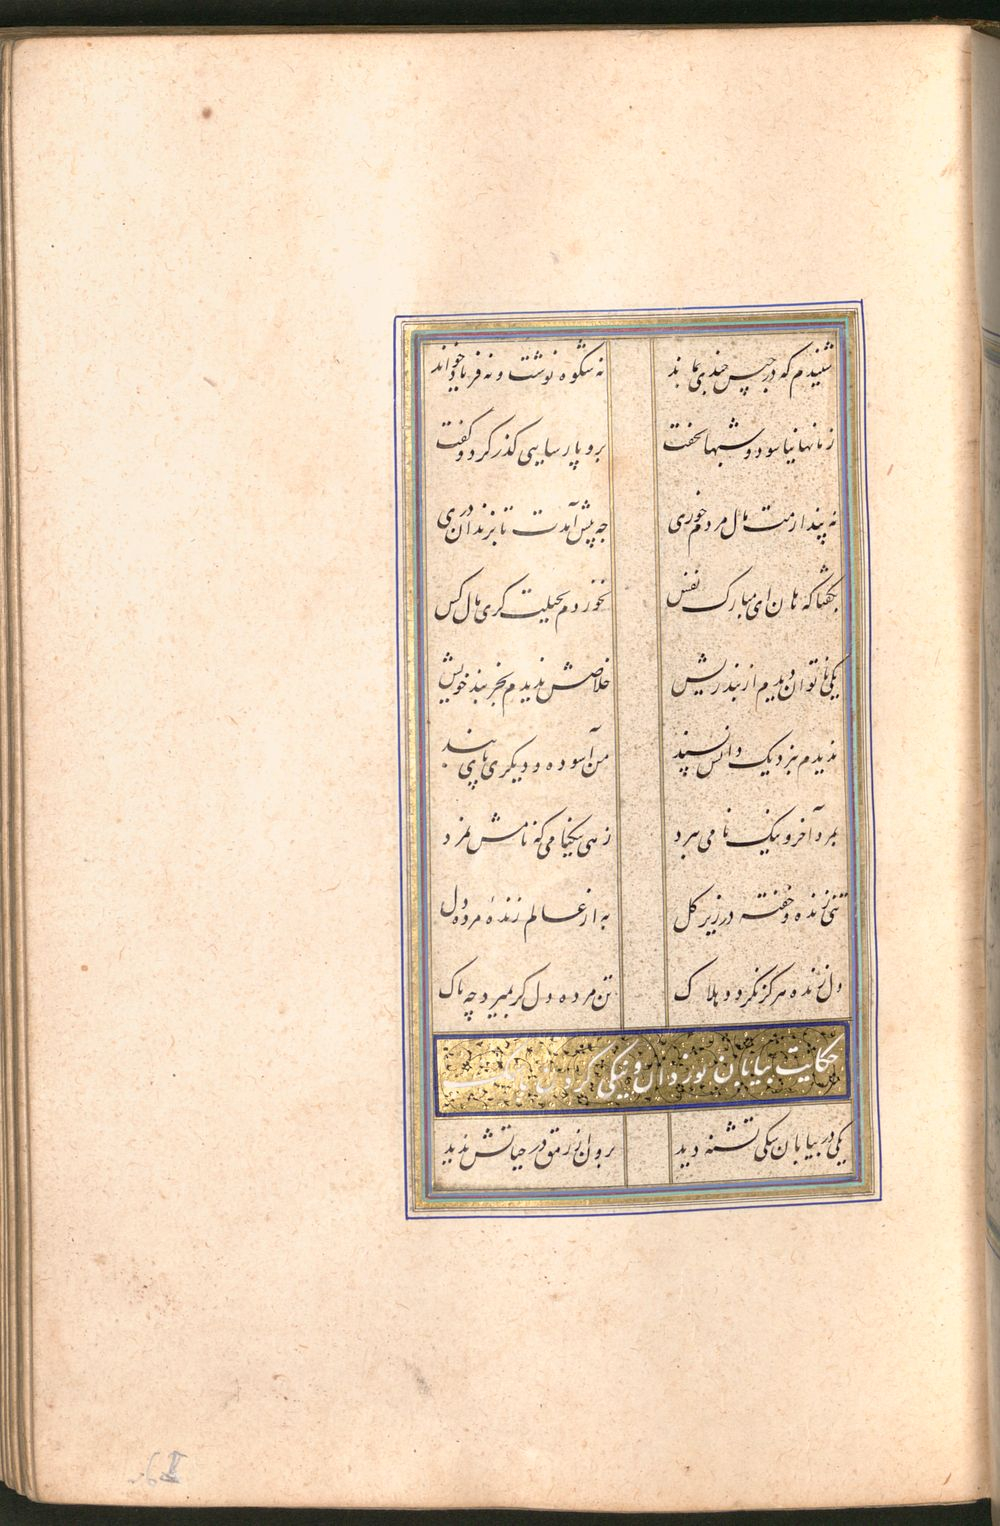 شنیدم که در حبس چندی بماند نه شکوه نوشت و نه فریاد خواند
زمانها نیاسود و شبها نخفت برو پارسایی گذر کرد و گفت
نه پندارمت مال مردم خوری چه پیش آمدت تا بزندان دری
بگفتا که هان ای مبارک نفس نخوردم بحیلت گری مال کس
یکی ناتوان دیدم از بند ریش خلاصش ندیدم بجز بند خویش
ندیدم بنزدیک دانش پسند من آسوده و دیگری پای بند
بمرد آخر و نیک نامی ببرد زهی نیکنامی که نامش نمرد
تنی زنده و خفته در زیر گل به از عالم زندهٔ مرده دل
دل زنده هرگز نگردد هلاک تن مرده دل گر بمیرد چه باک
حکایت بیابان نوردان و نیکی کردن با
یکی در بیابان سکی تشنه دید برون از رمق در حیاتش ندید